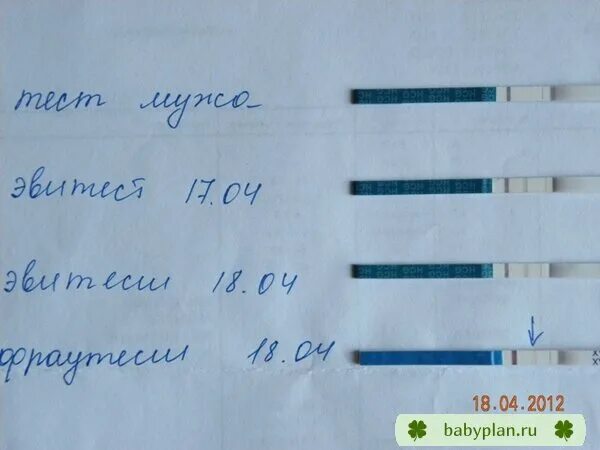 тест мужа
эвитест 17.04
эвитест 18.04
фраутест 18.04
18.04.2012
babyplan.ru